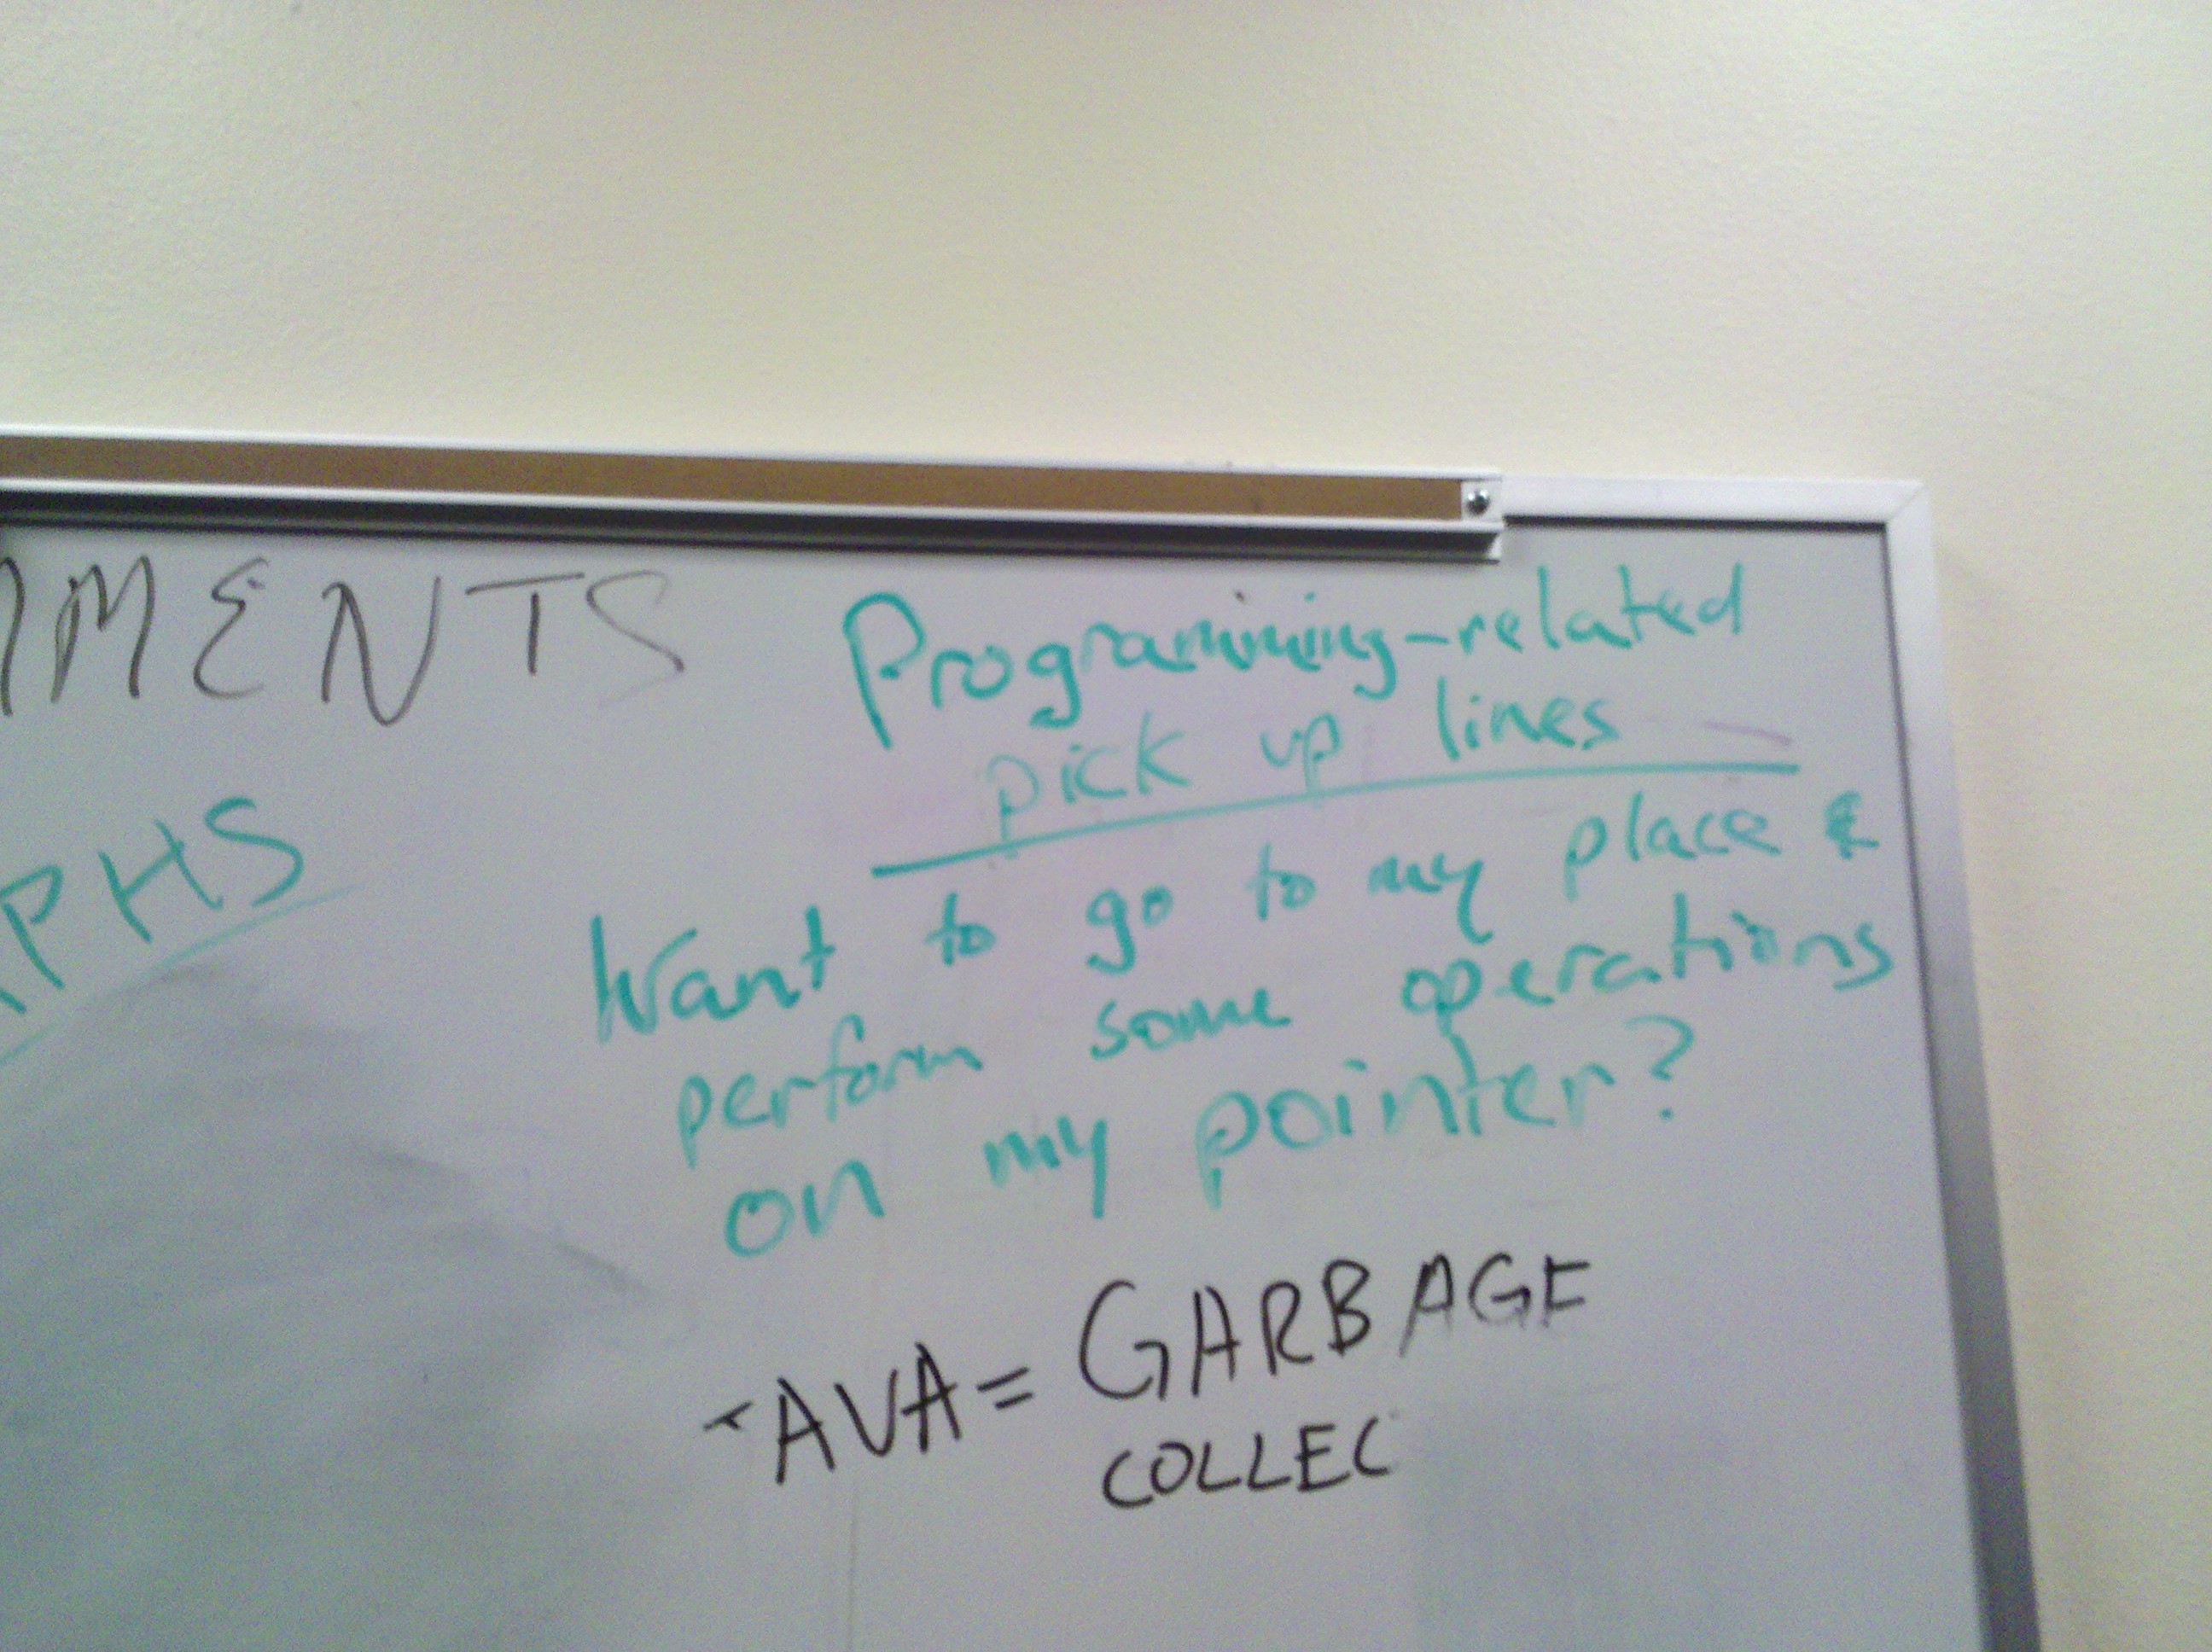 MENTS
PHS
Programming-related
pick up lines
Want to go to my place &
perform some operations
on my pointer?
AVA = GARBAGE
COLLEC